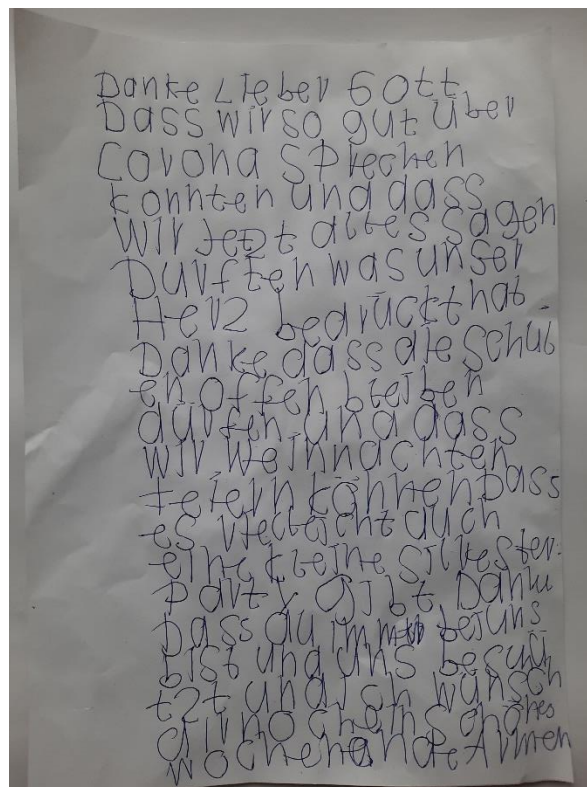 Danke Lieber Gott
Dass wir so gut über
Corona sprechen
konnten und dass
wir jetzt alles sagen
Durften was unser
Herz bedrückt hat.
Danke dass die Schul
en offen bleiben
dürfen und dass
wir Weihnachten
feiern können Dass
es vielleicht auch
eine kleine Silkvester-
party gibt Danke
Dass du immer bei uns
bist und uns beschü
tzt und ich wünsch
dir noch ein schönes
wochenende Armen